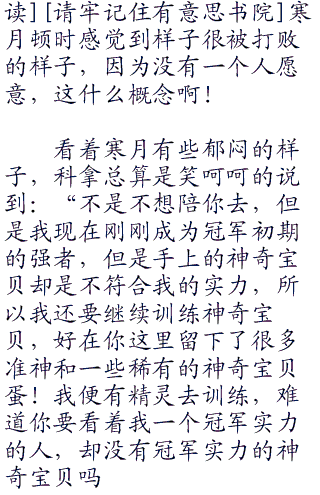 读][请牢记住有意思书院]寒
月顿时感觉到样子很被打败
的样子，因为没有一个人愿
意，这什么概念啊！
看着寒月有些郁闷的样
子，科拿总算是笑呵呵的说
到：“不是不想陪你去，但
是我现在刚刚成为冠军初期
的强者，但是手上的神奇宝
贝却是不符合我的实力，所
以我还要继续训练神奇宝
贝，好在你这里留下了很多
准神和一些稀有的神奇宝贝
蛋！我便有精灵去训练，难
道你要看着我一个冠军实力
的人，却没有冠军实力的神
奇宝贝吗